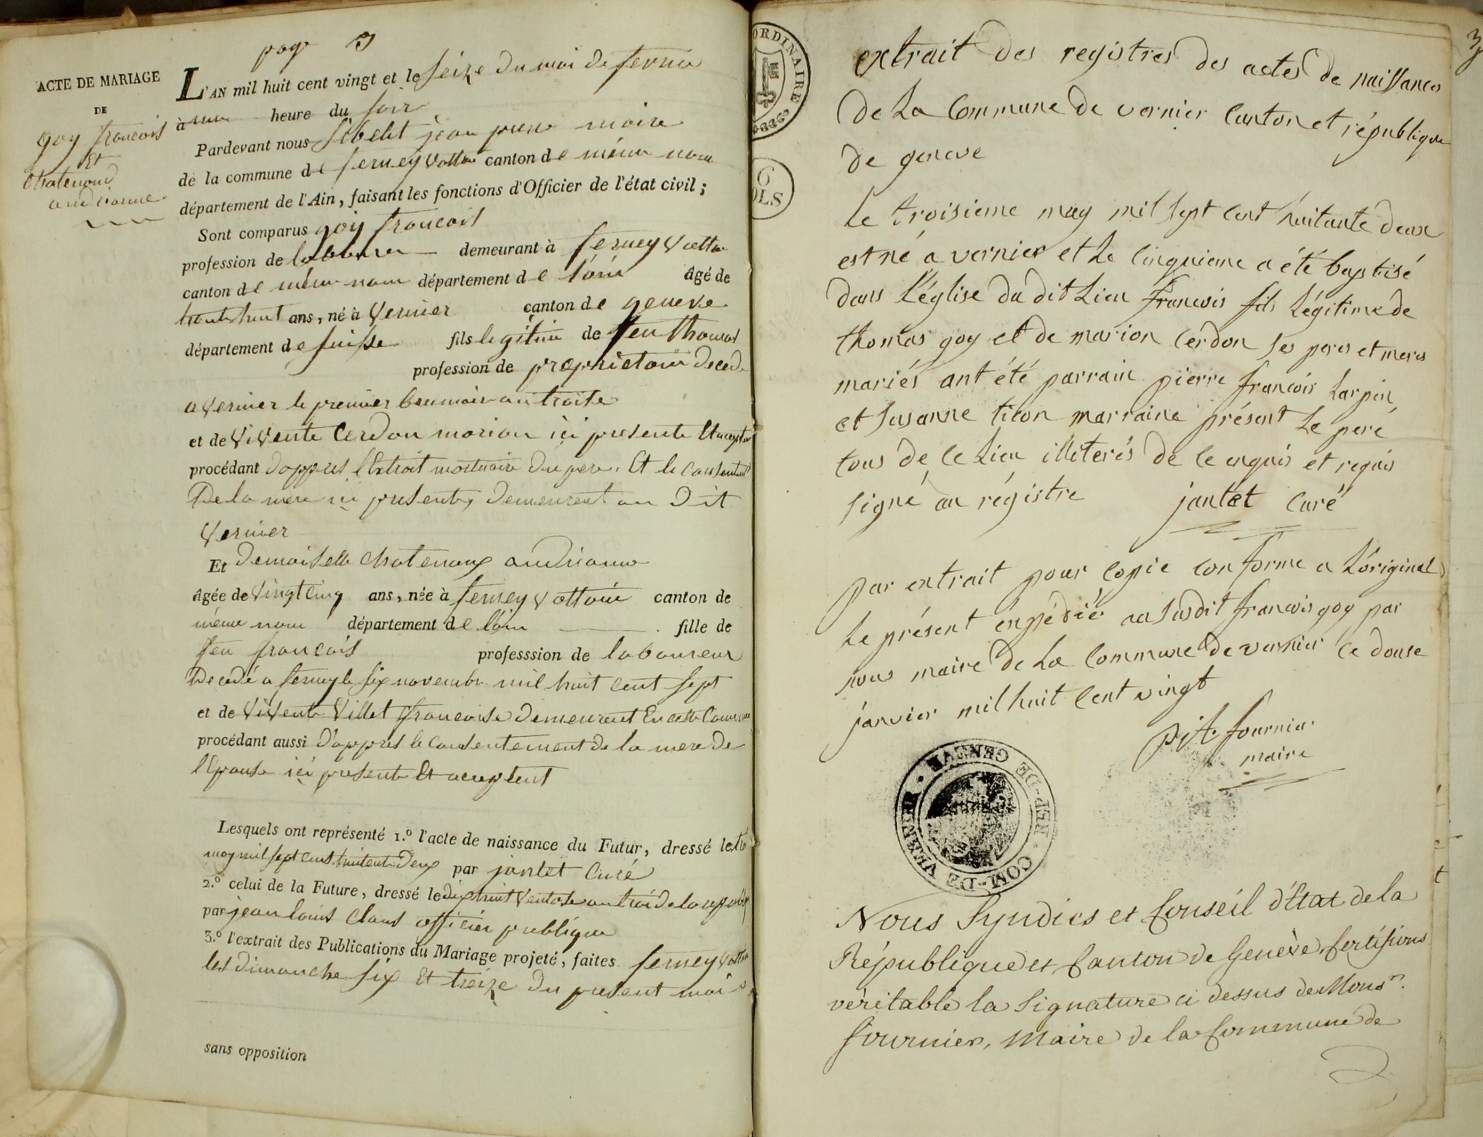 page 3
ACTE DE MARIAGE
DE
goy francois
Et
Chatenoud
andrianne
L'AN mil huit cent vingt et le seize du moi de fevrie
à une heure du soir
Pardevant nous jean pierre maire
de la commune de ferney voltaire canton de même nom
département de l'Ain, faisant les fonctions d'Officier de l'état civil;
Sont comparus goy francois
profession de laboureur demeurant à ferney voltaire
canton de même nom département de l'ain âgé de
trente huit ans, né à Vernier canton de geneve
département de suisse fils legitime de feu thomas
profession de proprietaire decedé
a Vernier le premier an treize
et de Vivente Cerdon marion ici presente Et acceptant
procédant d'appres l'Extrait mortuaire du pere. Et le consentement
De la mere ici presente, demeurent au Dit
Vernier
Et Demoiselle Chatenoux andrianne
âgée de Vingt cinq ans, née à ferney voltaire canton de
même nom département de l'ain fille de
feu francois professsion de laboureur
Decedé a ferney le six novembre mil huit cent sept
et de Vivente Villet francoise Demeurent En cette Commune
procédant aussi D'appres le consentement de la mere de
l'Epouse ici presente Et acceptent
Lesquels ont représenté 1.º l'acte de naissance du Futur, dressé le trois
may mil sept cent huitente Deux par jantet Curé
2.º celui de la Future, dressé le dix huit Ventose an trois de la republique
par jean louis officier publique
3.º l'extrait des Publications du Mariage projeté, faites ferney voltaire
les dimanche six Et treize du present mois
sans opposition
3
ORDINAIRE
extrait des registres des actes de naissances
de La Commune de vernier Canton et république
de geneve
Le troisieme may mil sept cent huitante deux
est né a vernier et Le Cinquieme a été baptisé
dans L'église du dit Lieu francois fils Légitime de
thomas goy et de marion Cerdon ses pere et mere
mariés ont été parrain pierre francois Larpin
et Susanne ticon marraine présent Le pere
tous de ce Lieu illiterés de ce enquis et requis
signé au régistre jantet Curé
par extrait pour copie conforme a L'original
Le présent éxpédiée au susdit francois goy par
nous maire de La Commune de vernier Ce douse
janvier mil huit cent vingt
fournier
maire
COM-DE VERNIER · RÉP-DE GENÈVE
Nous Syndics et Conseil d'Etat de la
République et Canton de Genève Certifions
véritable la Signature ci dessus de Monsr.
Fournier, Maire de la Commune de